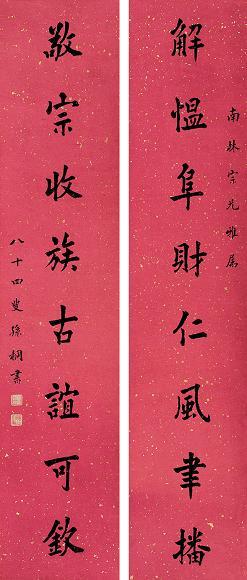 南林宗兄雅属
解愠阜財仁風聿播
敬宗收族古誼可欽
八十四叟孫桐書